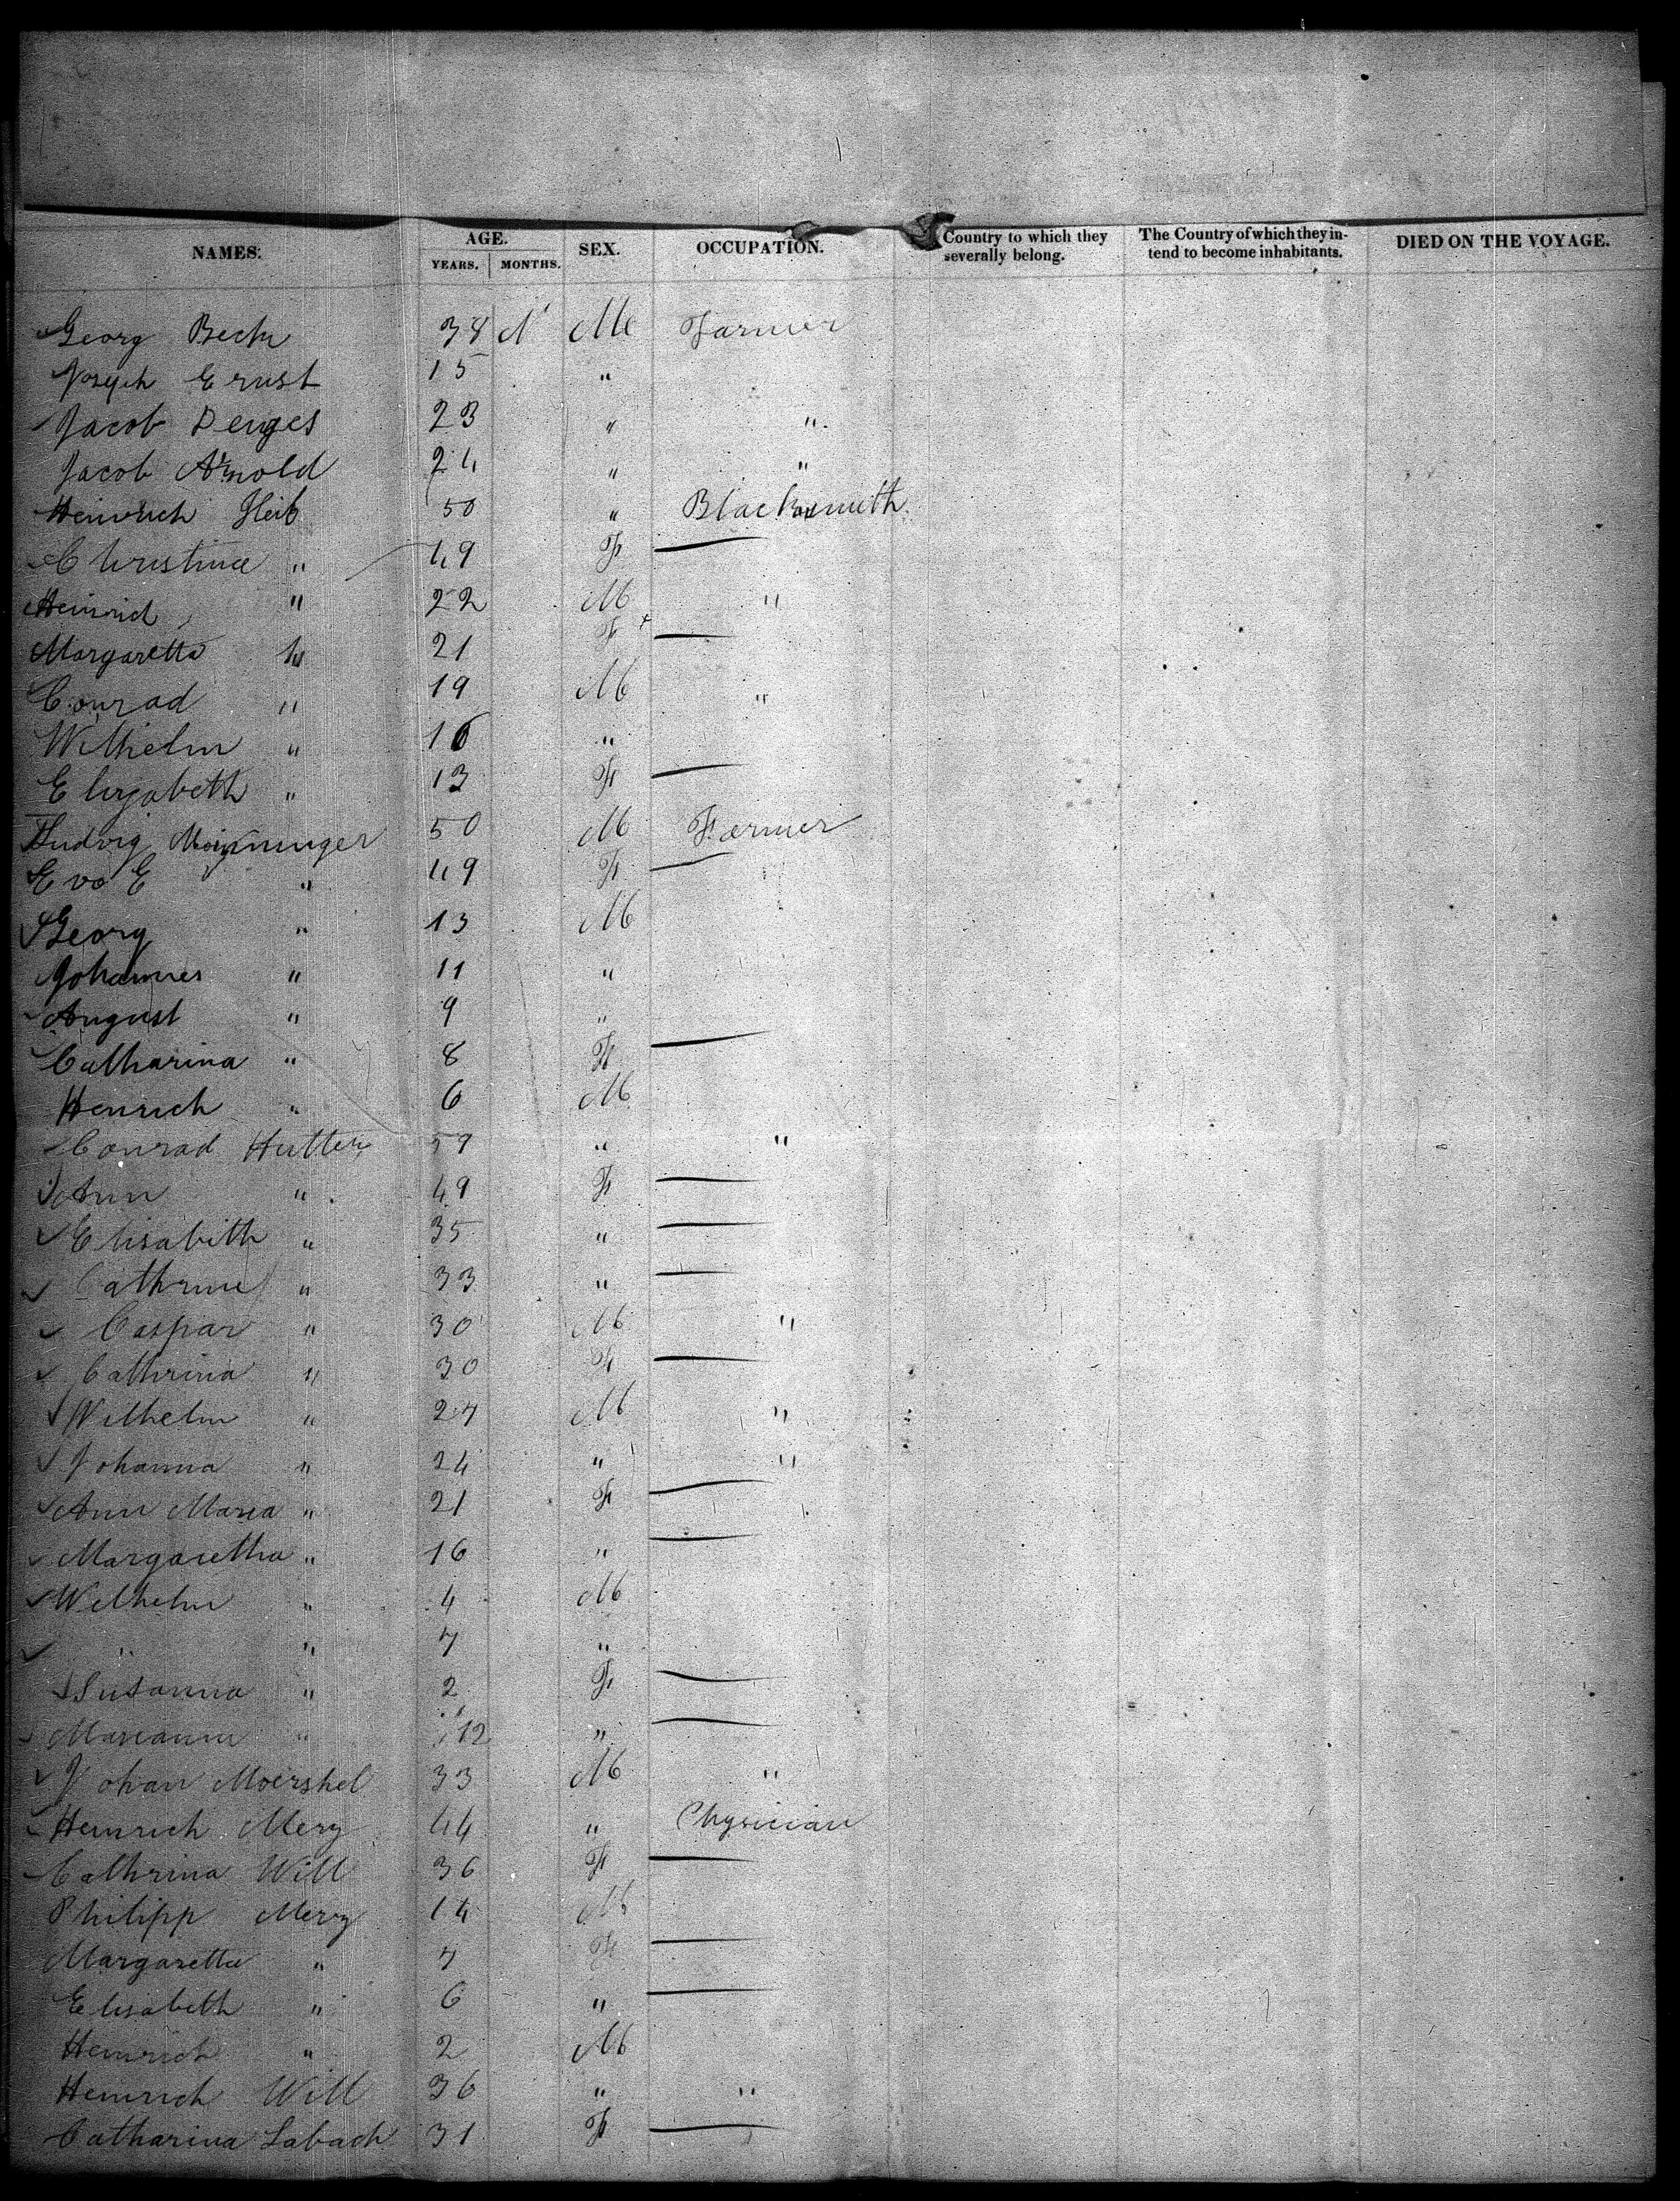 NAMES. AGE. YEARS. MONTHS. SEX. OCCUPATION. Country to which they severally belong. The Country of which they intend to become inhabitants. DIED ON THE VOYAGE.
Georg 38 M Farmer
Joseph Ernst 15 "
Jacob Denges 23 " "
Jacob Arnold 24 " "
Heinrich Heib 50 " Blacksmith
Christine " 49 F —
Heinrich " 22 M "
Margaretta " 21 F —
Conrad " 19 M "
Wilhelm " 16 "
Elizabeth " 13 F —
Ludvig 50 M Farmer
Eva E " 49 F —
Georg " 13 M
Johannes " 11 "
August " 9 "
Catharina " 8 F —
Henrich " 6 M
Conrad 59 " "
Ann " 49 F —
Elisabith " 35 " —
Cathrine " 33 " —
Caspar " 30 M "
Cathrina " 30 F —
Wilhelm " 27 M "
Johanna " 24 " "
Ann Maria " 21 F —
Margaretha " 16 " —
Wilhelm " 4 M
" " 7 "
Susanna " 2 F —
Mariann " " —
Johan Moershel 33 M "
Heinrich Merz 44 " Physician
Cathrina Will 36 F —
Philipp Merz 14 M
Margaretta " 7 F —
Elisabeth " 6 " —
Heinrich " 2 M
Heinrich Will 36 " "
Catharina Labach 31 F —